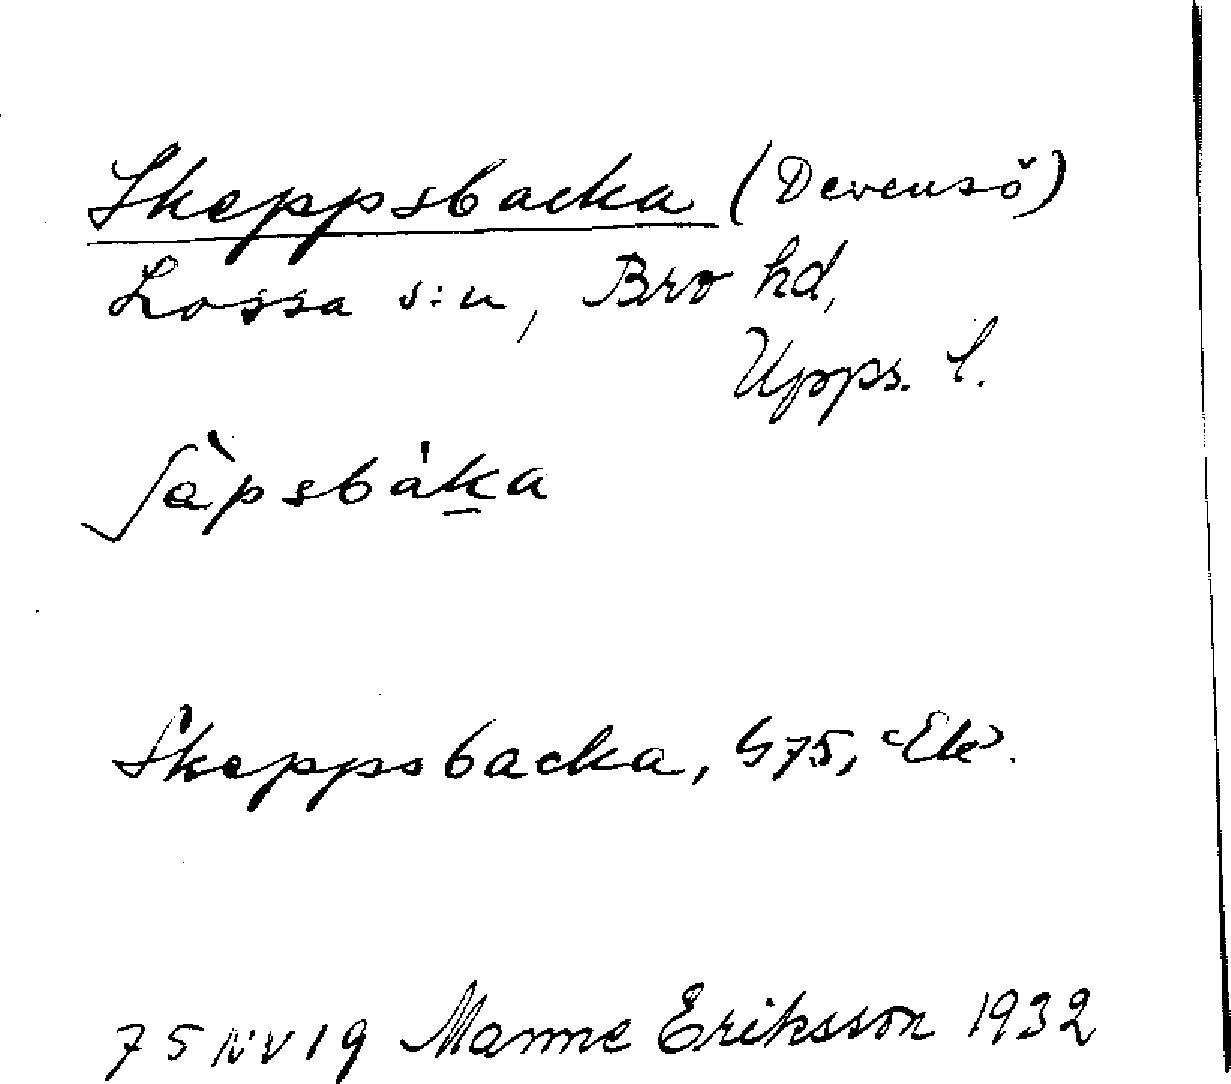 Skeppsbacka (Dävensö)
Lossa s:n, Bro hd,
Upps. l.
ʃèpsbák̲a
Skeppsbacka, G75, Ek.
75 NV 19 Manne Eriksson 1932